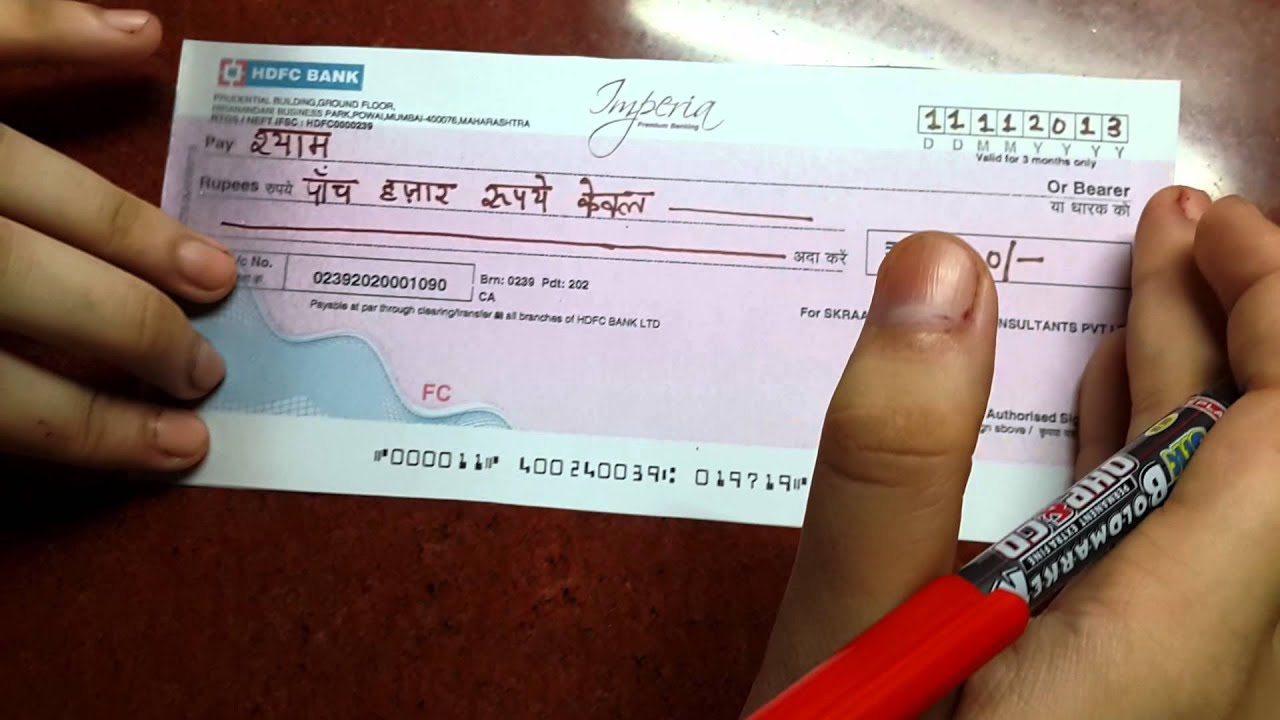 HDFC BANK
PRUDENTIAL BUILDING,GROUND FLOOR,
HIRANANDANI BUSINESS PARK,POWAI,MUMBAI-400076,MAHARASHTRA
RTGS / NEFT IFSC : HDFC0000239
Imperia
Premium Banking
11112013
D D M M Y Y Y Y
Valid for 3 months only
Pay श्याम
Or Bearer
या धारक को
Rupees रुपये पाँच हज़ार रूपये केवल
अदा करें
0/-
No.
02392020001090
Brn: 0239 Pdt: 202
CA
Payable at par through clearing/transfer at all branches of HDFC BANK LTD
For SKRAA
NSULTANTS PVT
FC
Authorised
above /
⑈000011⑈ 400240039⑆ 019719⑈
OHP & CD
BOLDMARKE
PERMANENT EXTRAFINE